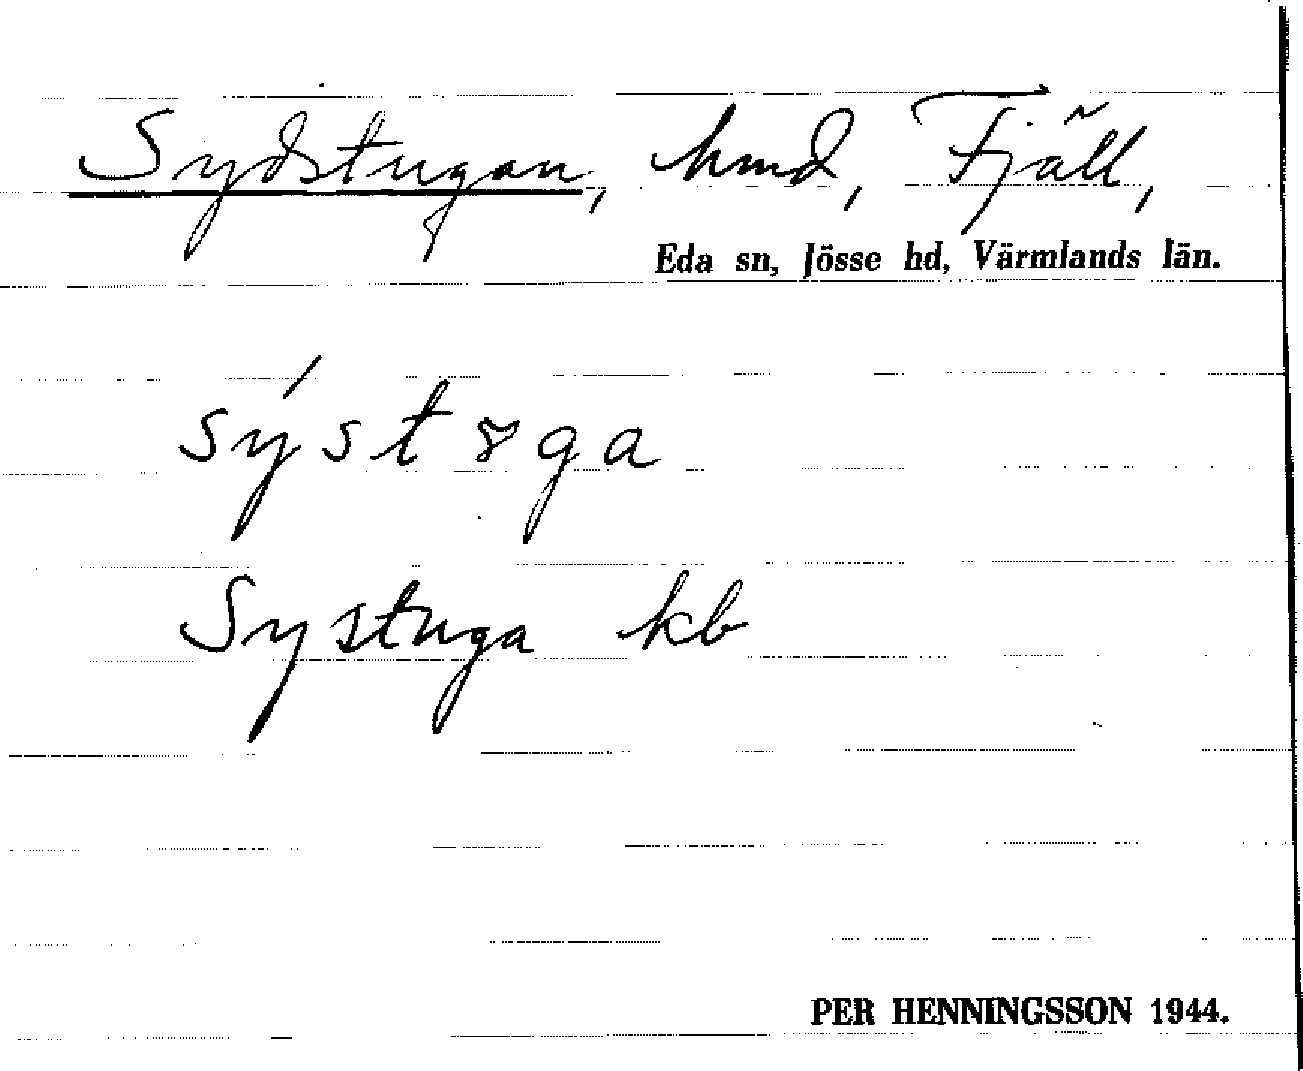 Sydstugan, hmd, Fjäll,
Eda sn, Jösse hd, Värmlands län.
sýstɤga
Systuga kb
PER HENNINGSSON 1944.